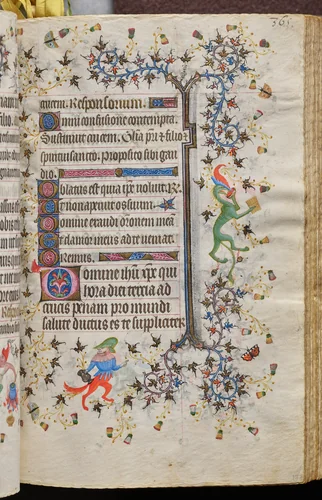 361
autem. Responsorium.
Omni confusione contempta.
Sustinuit autem. Glia pri et filio et
spirituisancto. proposito sibi gau
dio.
Oblatus est quia ipse uoluit. R.
mortis ossium.
Domine exaudi orōnem meā
Et clamor meus ad te ueniat.
Oremus.
Domine ihū xpe qui
hora diei tercia ad
crucis penam pro mundi
salute ductus es te suppliciter